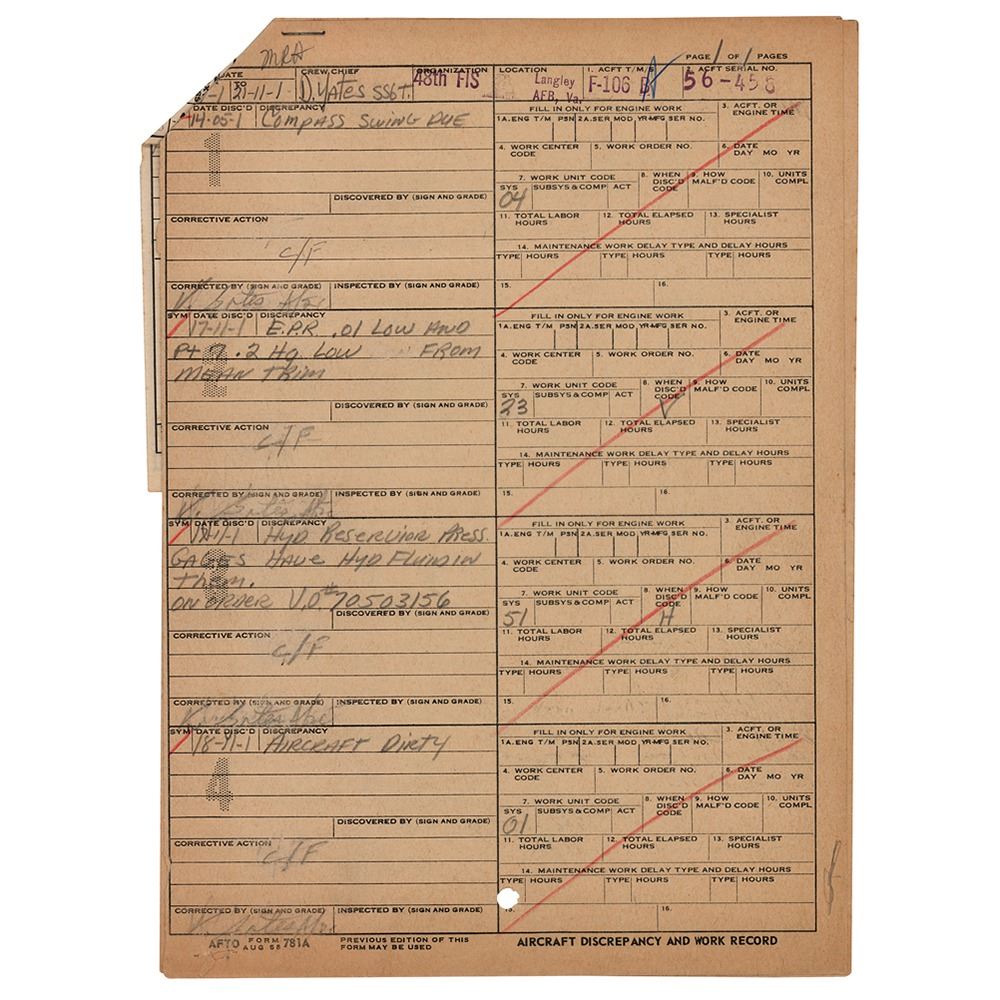 MRA
PAGE 1 OF 1 PAGES
DATE
CREW CHIEF
ORGANIZATION
LOCATION
1. ACFT T/M/S
2. ACFT SERIAL NO.
TO 21-11-1
D. YATES SSGT.
48th FIS
Langley
AFB, Va.
F-106
56-458
DATE DISC'D DISCREPANCY
FILL IN ONLY FOR ENGINE WORK
3. ACFT. OR ENGINE TIME
14-05-1 COMPASS SWING DUE
1A. ENG T/M PSN 2A. SER MOD YR-MFG SER NO.
1
4. WORK CENTER CODE
5. WORK ORDER NO.
6. DATE DAY MO YR
7. WORK UNIT CODE
8. WHEN DISC'D CODE
9. HOW MALF'D CODE
10. UNITS COMPL
SYS SUBSYS & COMP ACT
DISCOVERED BY (SIGN AND GRADE)
04
CORRECTIVE ACTION
11. TOTAL LABOR HOURS
12. TOTAL ELAPSED HOURS
13. SPECIALIST HOURS
C/F
14. MAINTENANCE WORK DELAY TYPE AND DELAY HOURS
TYPE HOURS TYPE HOURS TYPE HOURS
CORRECTED BY (SIGN AND GRADE) INSPECTED BY (SIGN AND GRADE)
15.
16.
SYM DATE DISC'D DISCREPANCY
FILL IN ONLY FOR ENGINE WORK
3. ACFT. OR ENGINE TIME
17-11-1 E.P.R. .01 LOW AND
1A. ENG T/M PSN 2A. SER MOD YR-MFG SER NO.
.2 Hg. LOW FROM
MEAN TRIM
4. WORK CENTER CODE
5. WORK ORDER NO.
6. DATE DAY MO YR
7. WORK UNIT CODE
8. WHEN DISC'D CODE
9. HOW MALF'D CODE
10. UNITS COMPL
SYS SUBSYS & COMP ACT
DISCOVERED BY (SIGN AND GRADE)
23
V
CORRECTIVE ACTION
11. TOTAL LABOR HOURS
12. TOTAL ELAPSED HOURS
13. SPECIALIST HOURS
C/F
14. MAINTENANCE WORK DELAY TYPE AND DELAY HOURS
TYPE HOURS TYPE HOURS TYPE HOURS
CORRECTED BY (SIGN AND GRADE) INSPECTED BY (SIGN AND GRADE)
15.
16.
SYM DATE DISC'D DISCREPANCY
FILL IN ONLY FOR ENGINE WORK
3. ACFT. OR ENGINE TIME
HYD RESERVIOR PRESS.
1A. ENG T/M PSN 2A. SER MOD YR-MFG SER NO.
GAGES HAVE HYD FLUID IN
them.
ON ORDER V.O# 70503156
4. WORK CENTER CODE
5. WORK ORDER NO.
6. DATE DAY MO YR
7. WORK UNIT CODE
8. WHEN DISC'D CODE
9. HOW MALF'D CODE
10. UNITS COMPL
SYS SUBSYS & COMP ACT
DISCOVERED BY (SIGN AND GRADE)
51
H
CORRECTIVE ACTION
11. TOTAL LABOR HOURS
12. TOTAL ELAPSED HOURS
13. SPECIALIST HOURS
C/F
14. MAINTENANCE WORK DELAY TYPE AND DELAY HOURS
TYPE HOURS TYPE HOURS TYPE HOURS
CORRECTED BY (SIGN AND GRADE) INSPECTED BY (SIGN AND GRADE)
15.
16.
SYM DATE DISC'D DISCREPANCY
FILL IN ONLY FOR ENGINE WORK
3. ACFT. OR ENGINE TIME
18-11-1 AIRCRAFT DIRTY
1A. ENG T/M PSN 2A. SER MOD YR-MFG SER NO.
4
4. WORK CENTER CODE
5. WORK ORDER NO.
6. DATE DAY MO YR
7. WORK UNIT CODE
8. WHEN DISC'D CODE
9. HOW MALF'D CODE
10. UNITS COMPL
SYS SUBSYS & COMP ACT
DISCOVERED BY (SIGN AND GRADE)
01
CORRECTIVE ACTION
11. TOTAL LABOR HOURS
12. TOTAL ELAPSED HOURS
13. SPECIALIST HOURS
C/F
14. MAINTENANCE WORK DELAY TYPE AND DELAY HOURS
TYPE HOURS TYPE HOURS TYPE HOURS
CORRECTED BY (SIGN AND GRADE) INSPECTED BY (SIGN AND GRADE)
15.
16.
AFTO FORM 781A AUG 58
PREVIOUS EDITION OF THIS FORM MAY BE USED
AIRCRAFT DISCREPANCY AND WORK RECORD